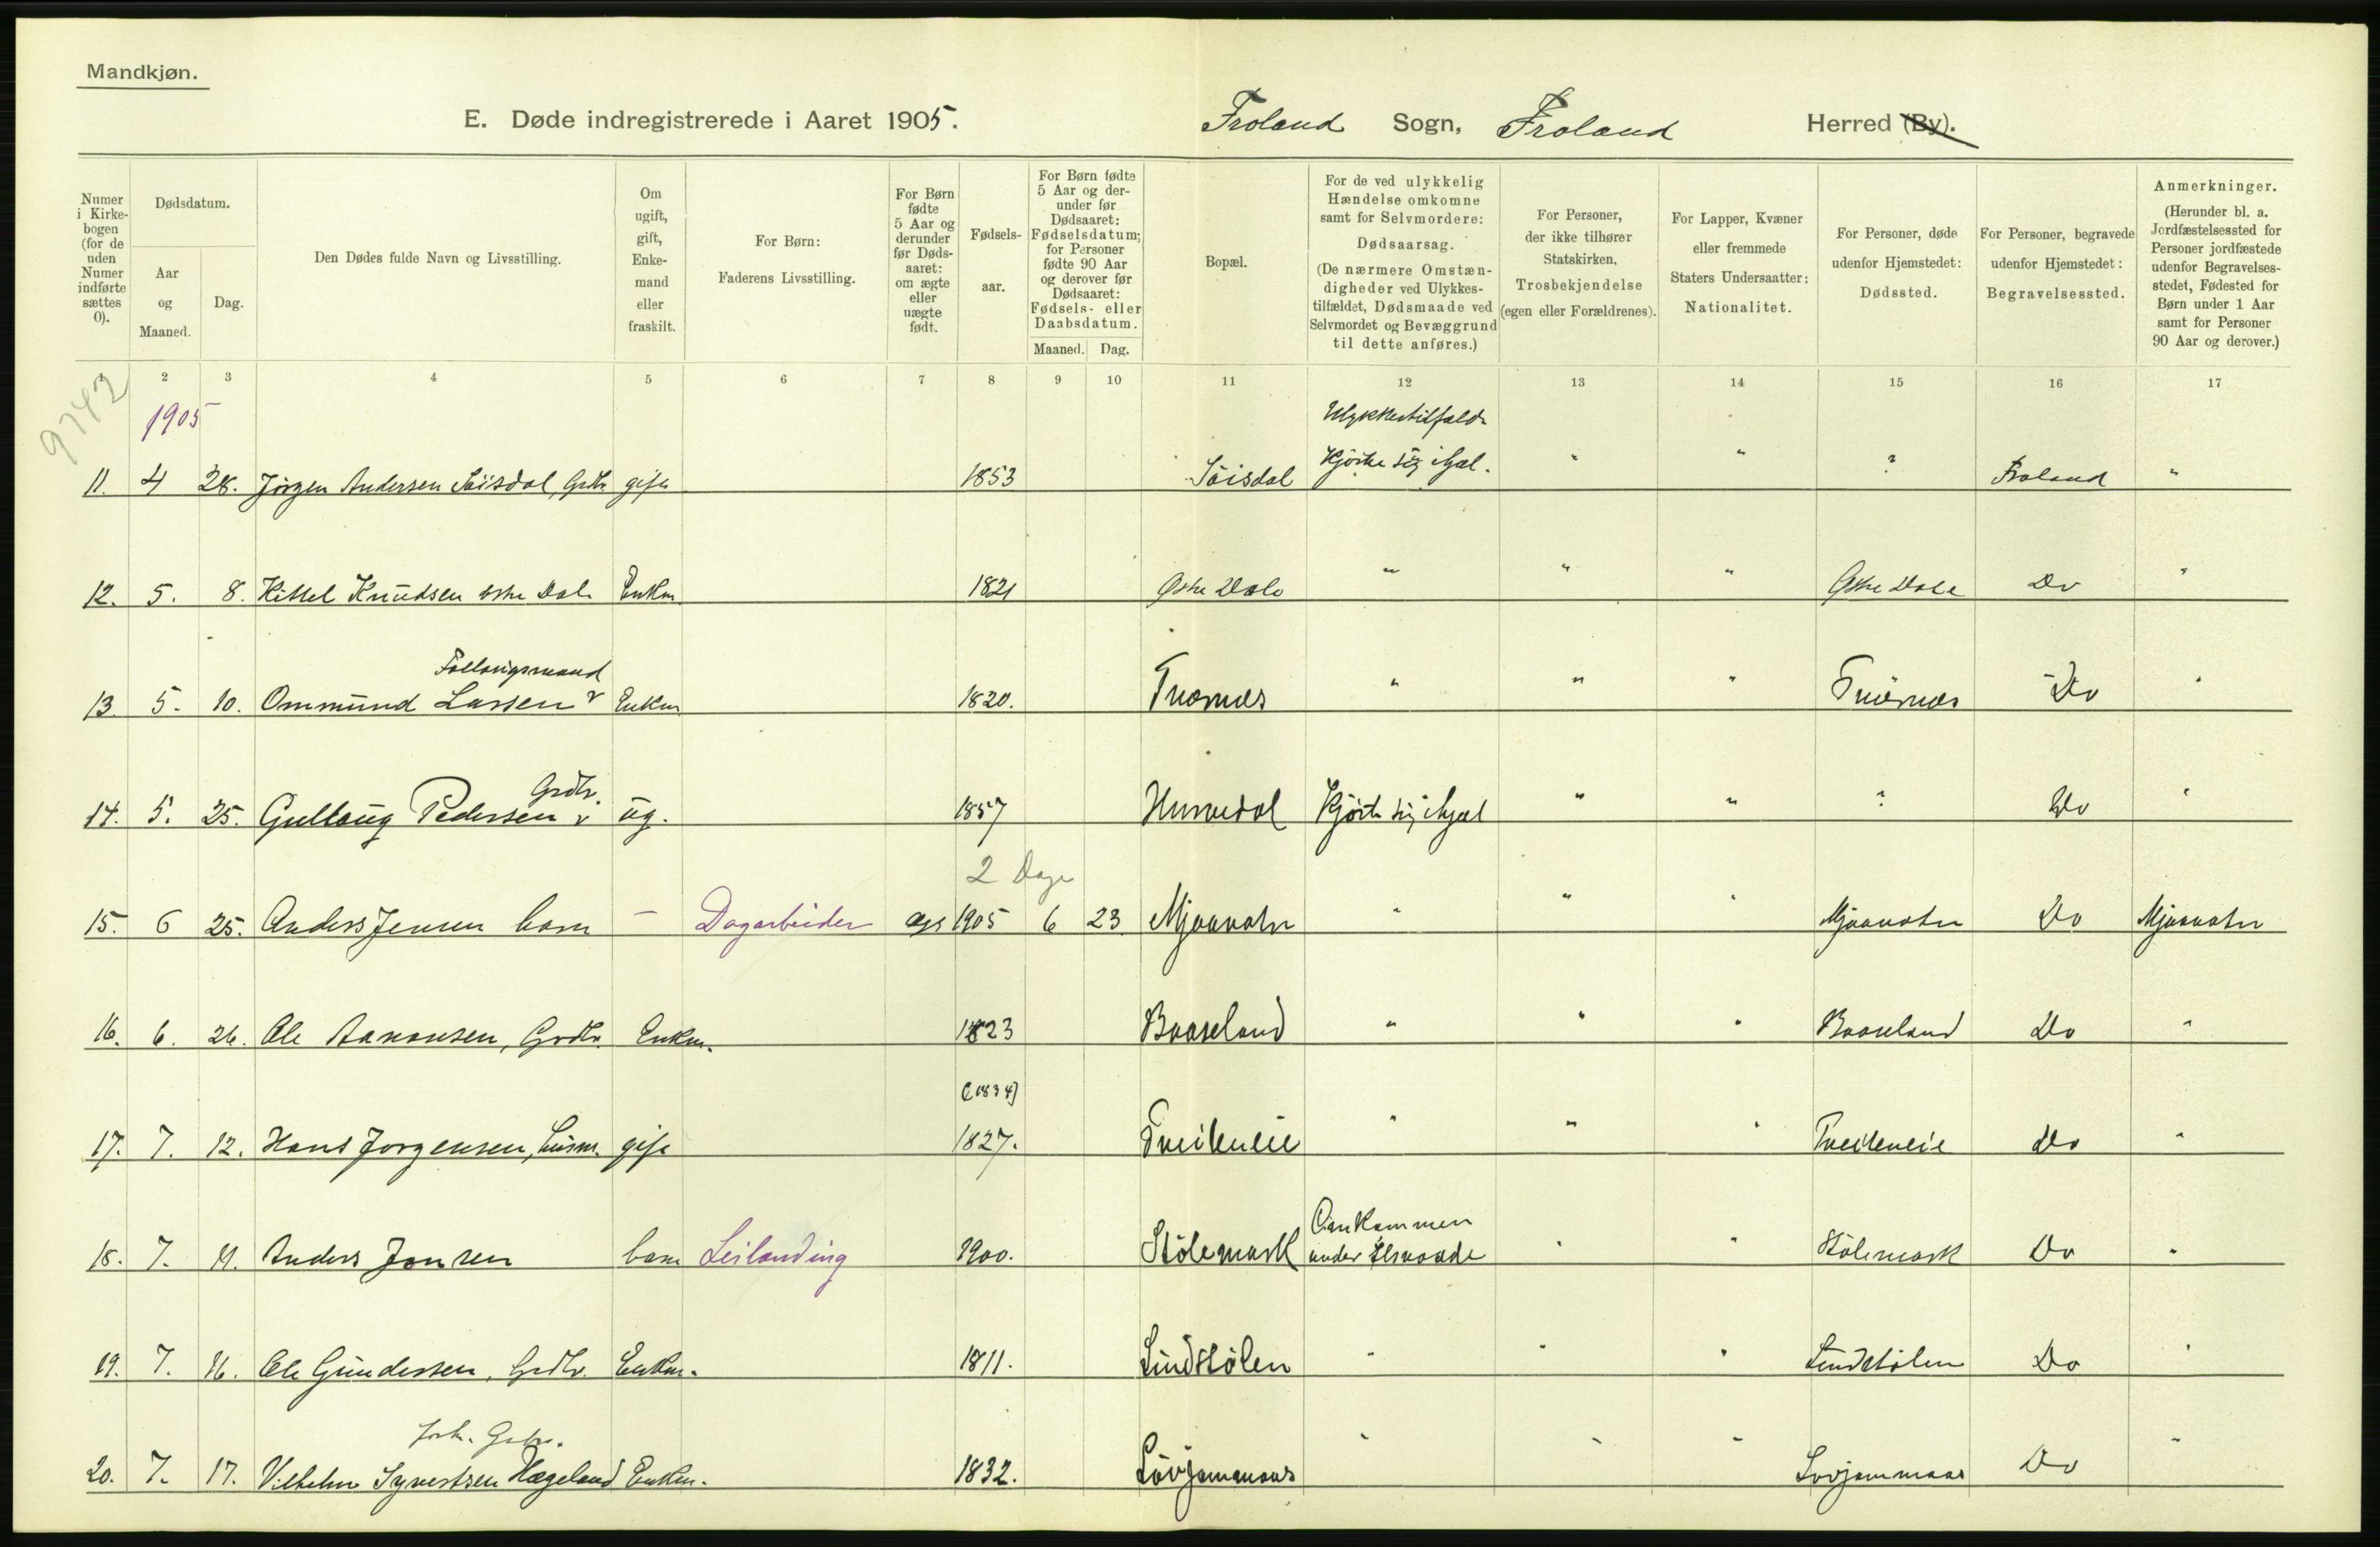 Mandkjøn.
E. Døde indregistrerede i Aaret 1905. Froland Sogn, Froland Herred (By).
Numer i Kirkebogen (for de uden Numer indførte sættes 0).
Dødsdatum.
Aar og Maaned.
Dag.
Den Dødes fulde Navn og Livsstilling.
Om ugift, gift, Enkemand eller fraskilt.
For Børn: Faderens Livsstilling.
For Børn fødte 5 Aar og derunder før Dødsaaret: om ægte eller uægte født.
Fødselsaar.
For Børn fødte 5 Aar og derunder før Dødsaaret: Fødselsdatum; for Personer fødte 90 Aar og derover før Dødsaaret: Fødsels- eller Daabsdatum.
Maaned. Dag.
Bopæl.
For de ved ulykkelig Hændelse omkomne samt for Selvmordere: Dødsaarsag. (De nærmere Omstændigheder ved Ulykkestilfældet, Dødsmaade ved Selvmordet og Bevæggrund til dette anføres.)
For Personer, der ikke tilhører Statskirken, Trosbekjendelse (egen eller Forældrenes).
For Lapper, Kvæner eller fremmede Staters Undersaatter: Nationalitet.
For Personer, døde udenfor Hjemstedet: Dødssted.
For Personer, begravede udenfor Hjemstedet: Begravelsessted.
Anmerkninger. (Herunder bl. a. Jordfæstelsessted for Personer jordfæstede udenfor Begravelsesstedet, Fødested for Børn under 1 Aar samt for Personer 90 Aar og derover.)
1 2 3 4 5 6 7 8 9 10 11 12 13 14 15 16 17
9742
1905 Ulykkestilfælde
11. 4 28. Jörgen Andersen Söisdal, Grdbr gift 1853 Söisdal Kjörte sig ihjel. " " ? Froland "
12. 5. 8. Kittel Knudsen östre Dale Enkm 1821 Östre Dale " " " Östre Dale Do "
Follaugsmand
13. 5. 10. Ommund Larsen v Enkm 1820. " " " Do "
Grdbr.
14. 5. 25. Gullaug Pedersen v ug. 1857 Hurvedal Kjörte sig ihjel " " ? Do "
2 Dage
15. 6 25. Anders Jensen barn – Dagarbeider ægt 1905 6 23. Mjaavatn " " " Mjaavatn Do Mjaavatn
16. 6. 26. Ole Aanonsen, Grdbr. Enkm. 1823 Baaseland " " " Baaseland Do "
(1834)
17. 7. 12. Hans Jorgensen, Husm. gift 1827. Tveiteneie " " " Tveiteneie Do "
Omkommen
18. 7. 11. Anders Jensen barn Leilænding 1900. Stölemark under " " Stölemark Do "
19. 7. 16. Ole Gundersen, Grdbr. Enkm. 1811. Lindtölen " " " Lindtölen Do "
forh. Grbr.
20. 7. 17. Vilhelm Syvertsen Hægeland Enkm. 1832. Lövjommaas " " " Lovjommaas Do "